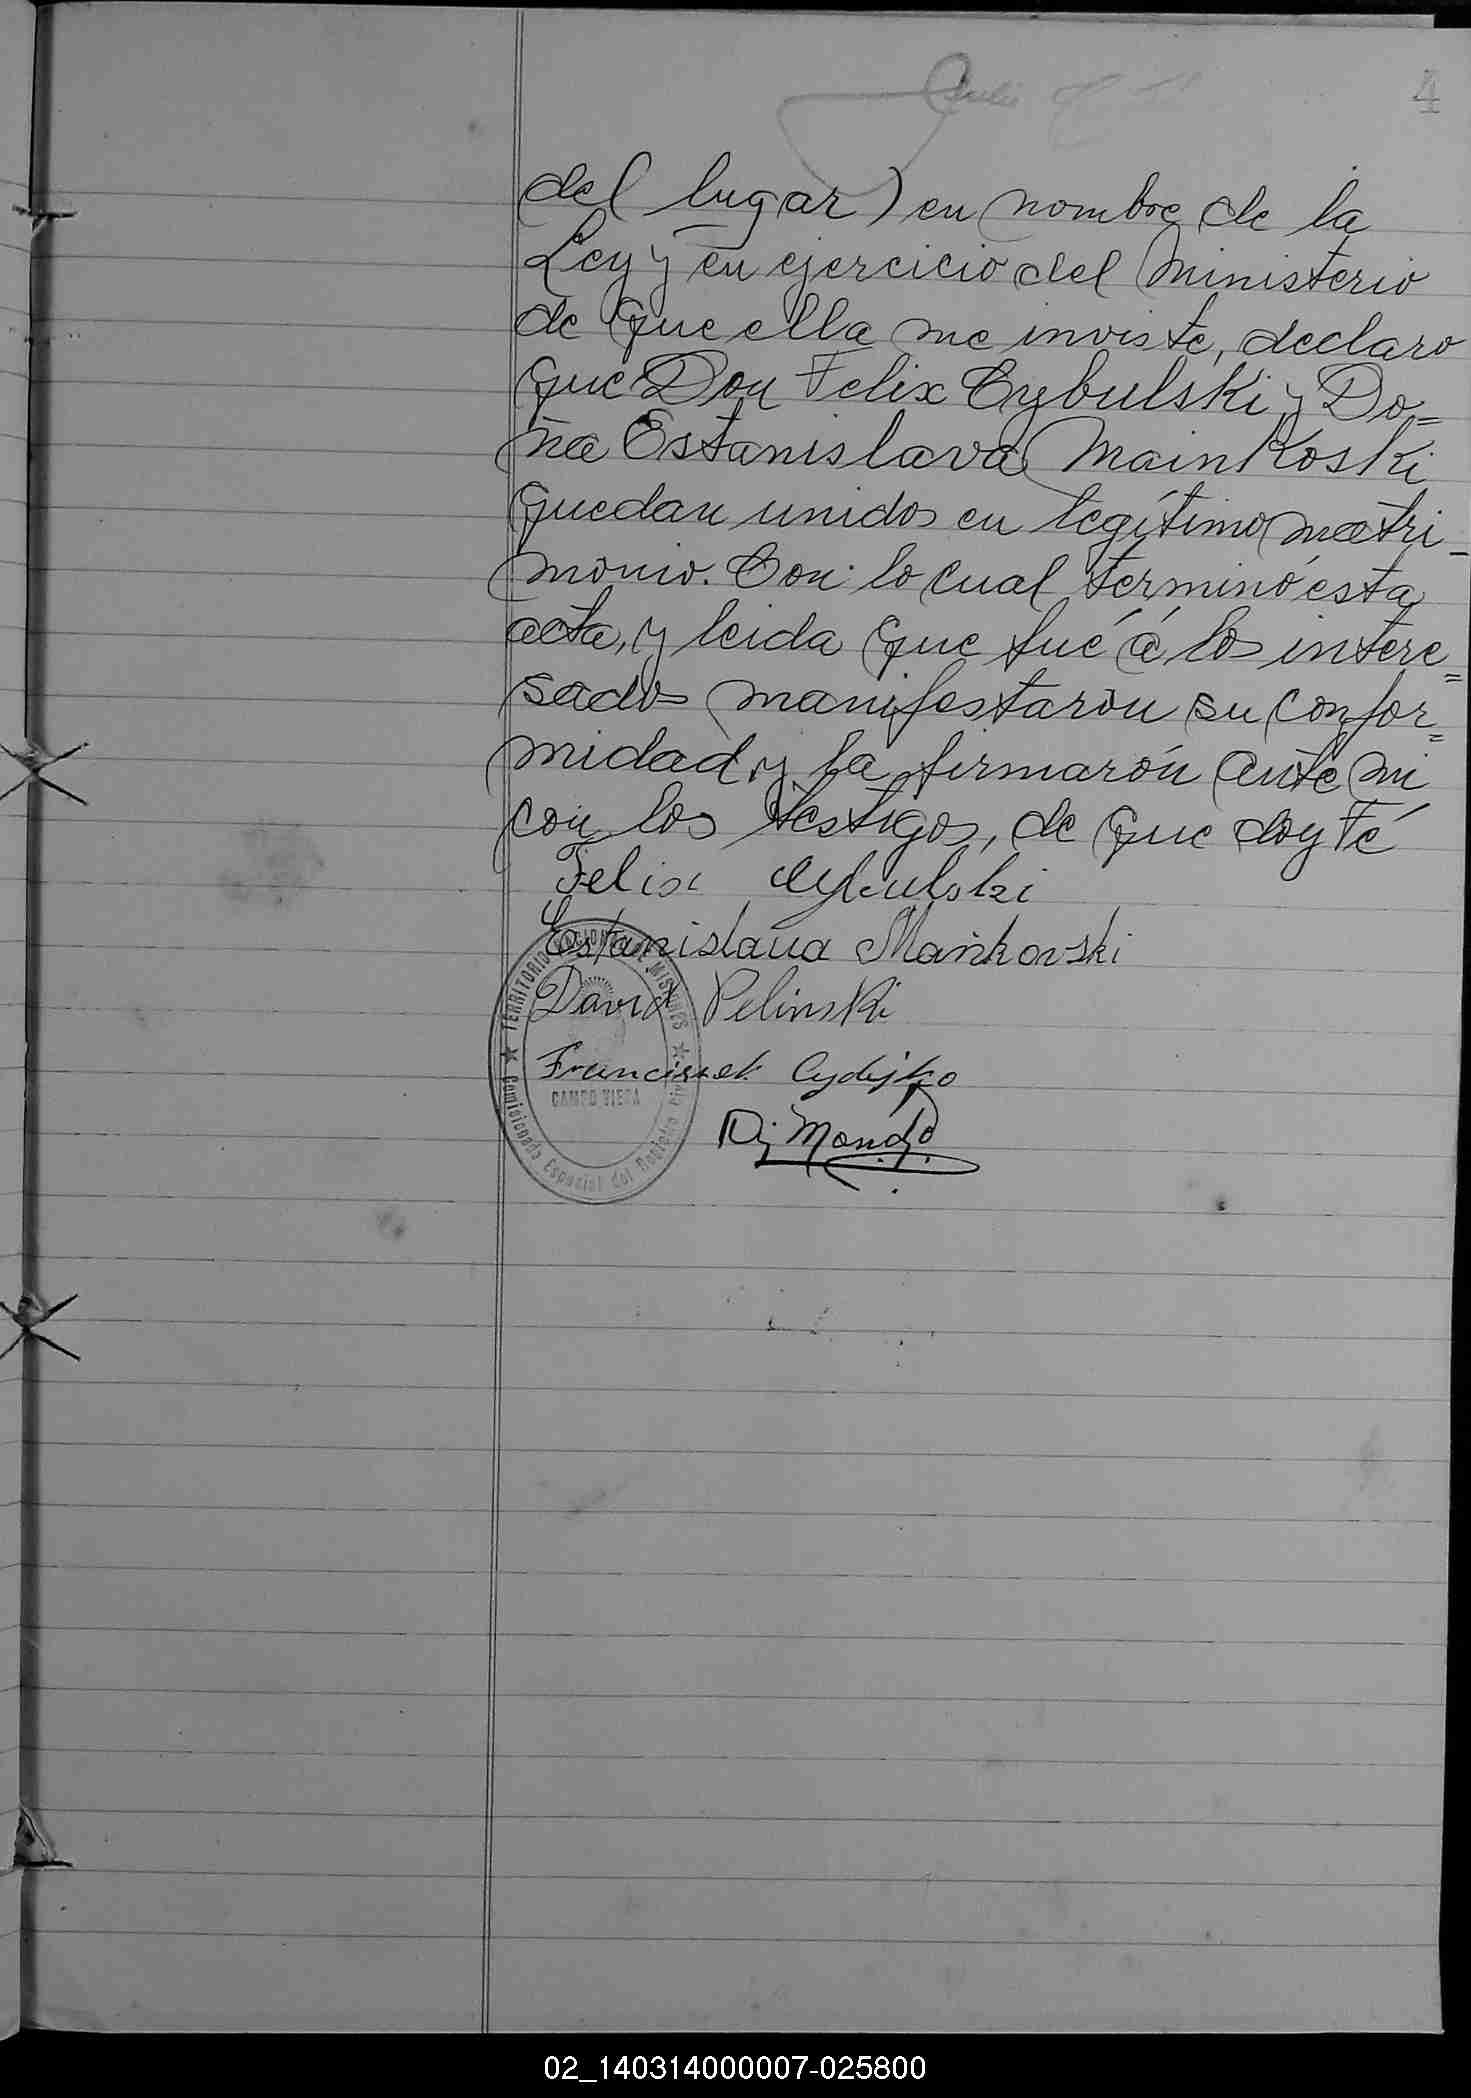 4
del lugar) en nombre de la
Ley y en ejercicio del Ministerio
de que ella me inviste, declaro
que Don Felix Cybulski y Do=
ña Estanislava Mainkoski
quedan unidos en legítimo matri-
monio. Con lo cual terminó esta
acta, y leida que fué á los intere=
sados manifestarón su confor=
midad y la firmarón ante mi
con los testigos, de que doy Fé
Felix Cybulski
Estanislaua Mańkovski
David Pelinski
Franciszek
TERRITORIO NACIONAL DE MISIONES
CAMPO VIERA
Comisionado Especial del Registro Civil
02_140314000007-025800